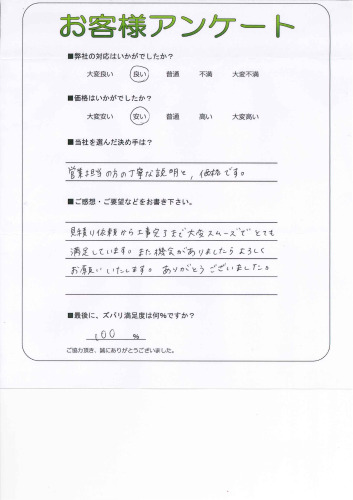 お客様アンケート
■弊社の対応はいかがでしたか?
大変良い 良い 普通 不満 大変不満
■価格はいかがでしたか?
大変安い 安い 普通 高い 大変高い
■当社を選んだ決め手は?
営業担当の方の丁寧な説明と,価格です。
■ご感想・ご要望などをお書き下さい。
見積り依頼から工事完了まで大変スムーズでとても
満足しています。また機会がありましたらよろしく
お願いいたします。ありがとうございました。
■最後に、ズバリ満足度は何%ですか?
100 %
ご協力頂き、誠にありがとうございました。